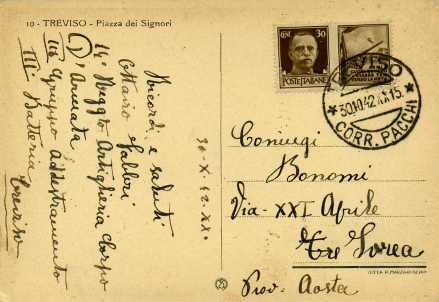 10 - TREVISO - Piazza dei Signori
Ricordi e saluti
Mario Fabbri
14° Regg Artiglieria Corpo
d'Armata
III Gruppo Addestramento
III Batteria
Treviso
30-X-42-XX°
CENT. 30
POSTE ITALIANE
TREVISO
30.10.42.XX 15
CORR. PACCHI
Coniugi
Bonomi
Via XXI Aprile
Prov. Aosta
DITTA P. MARZARI-SCHIO